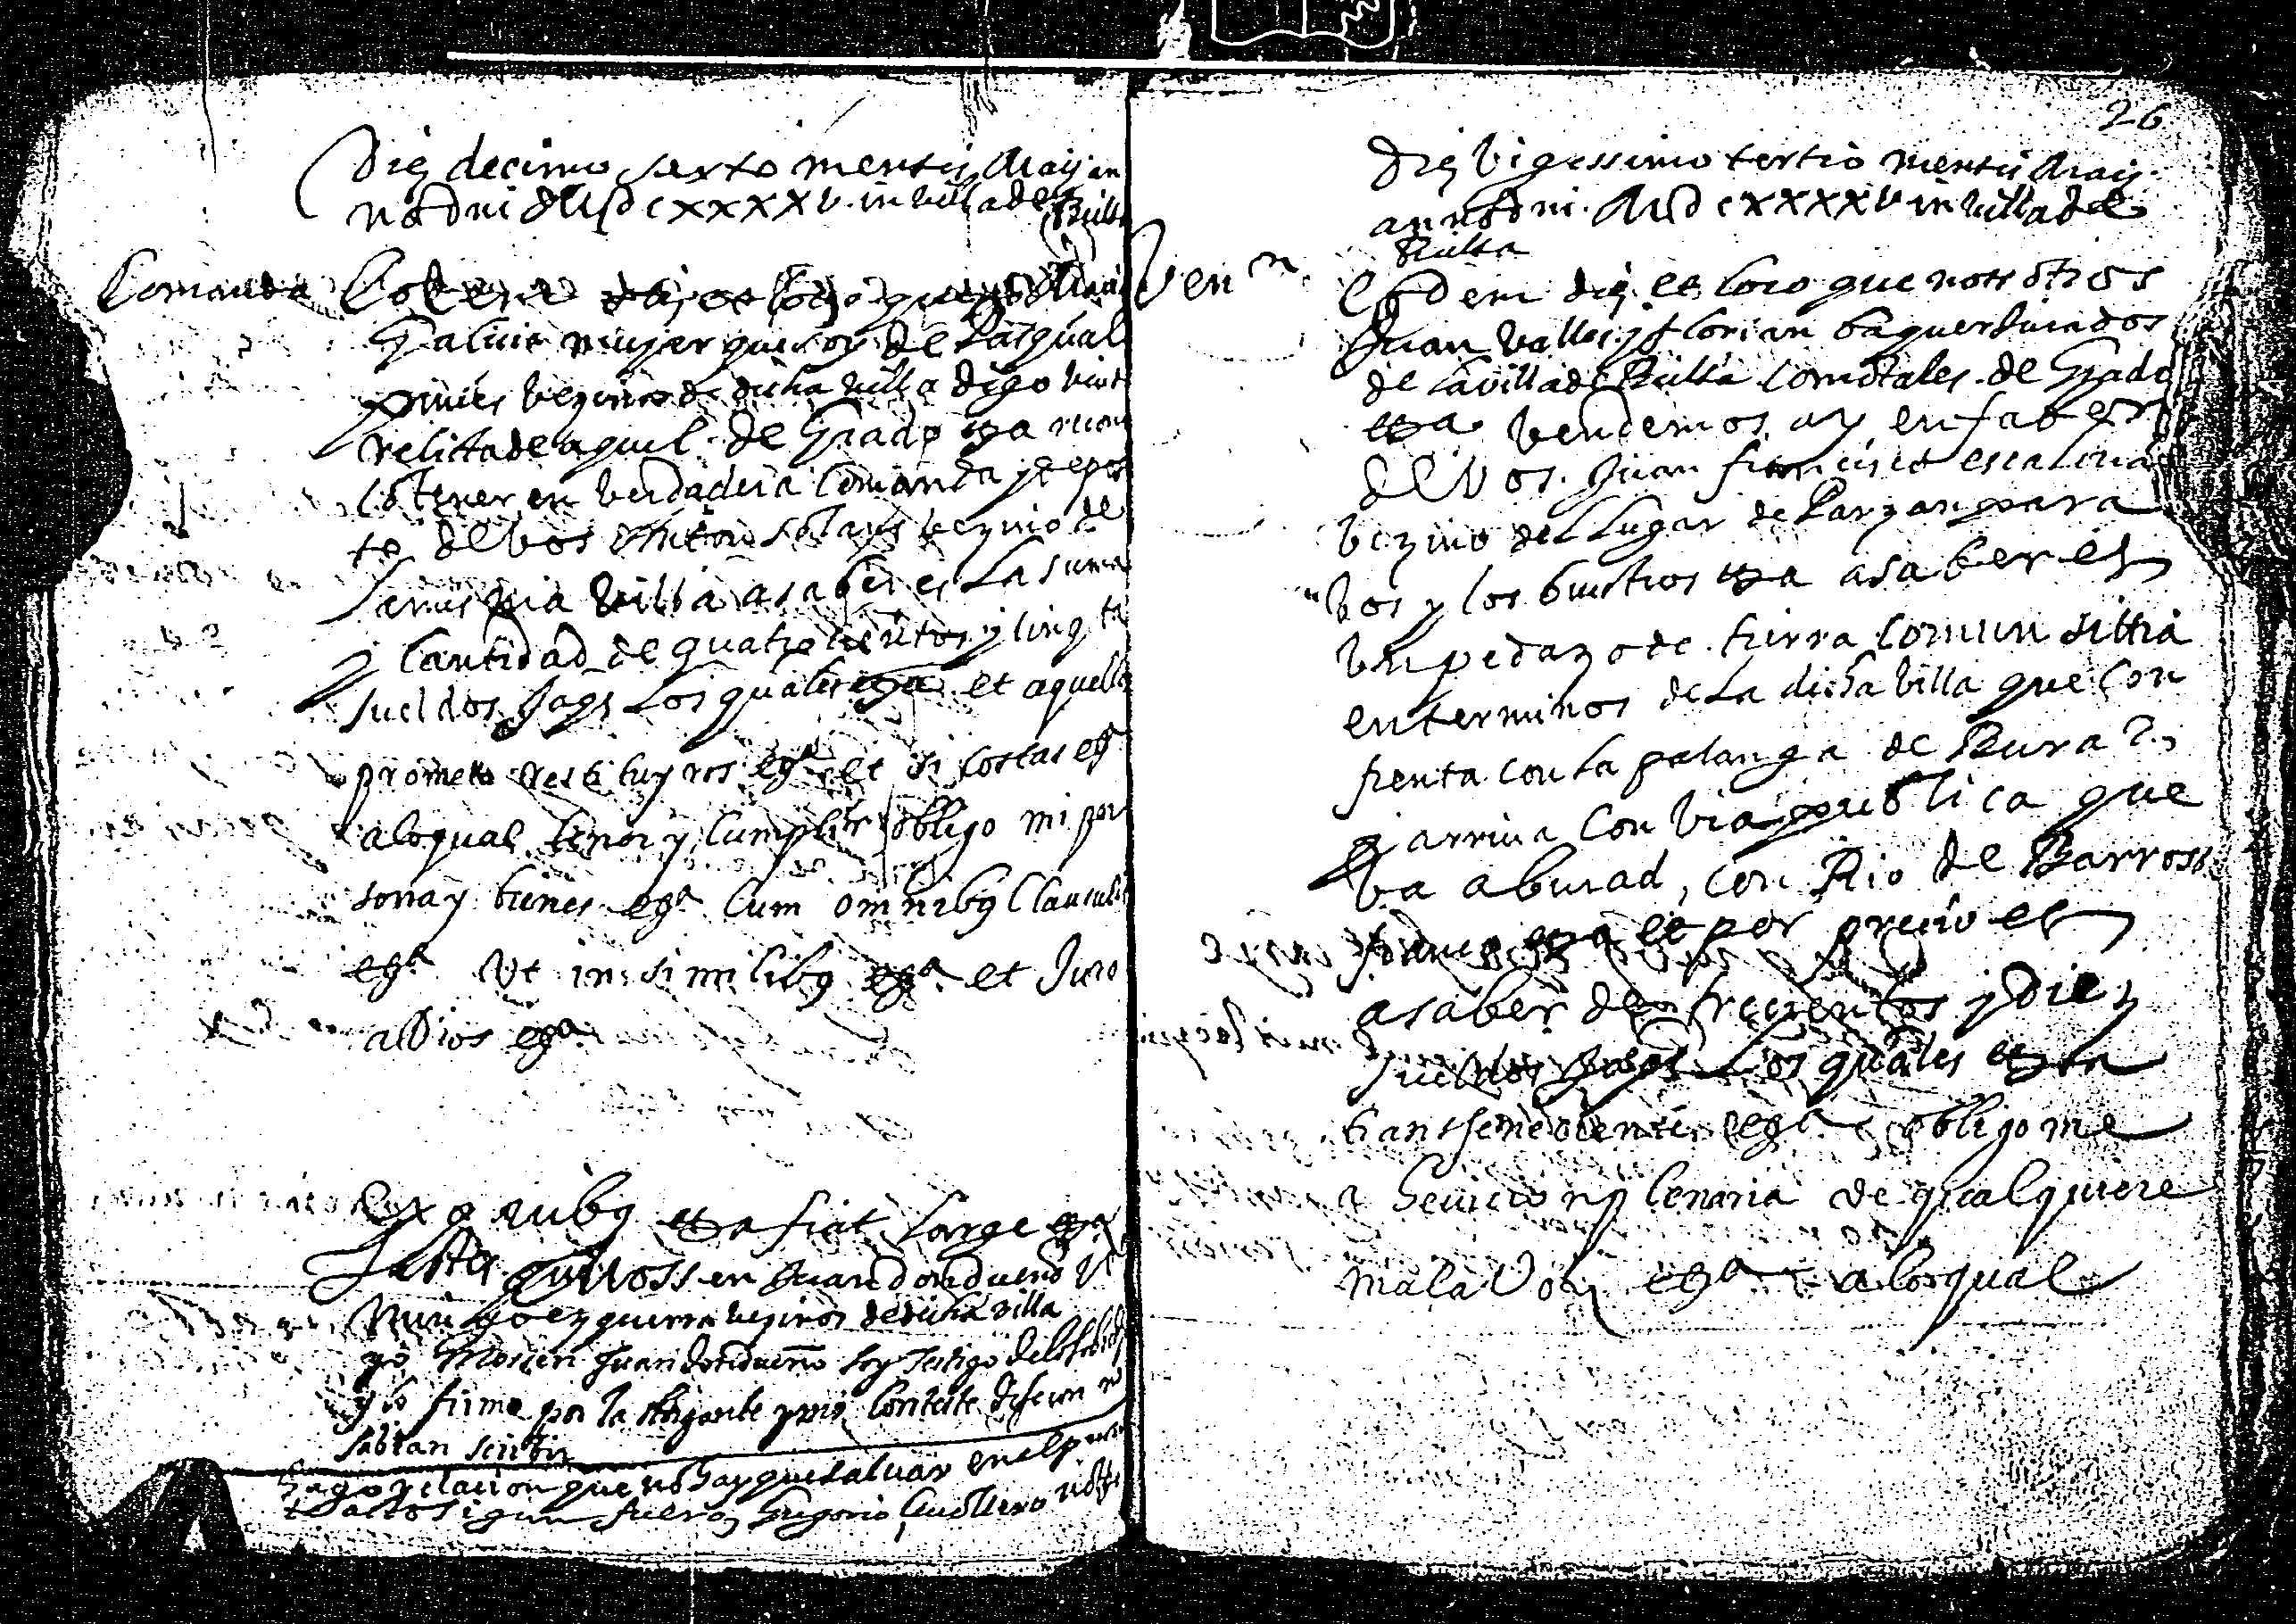 Die decimo sexto mensis Maij an
no dni MDCXXXXV in villa de Bielsa
Comanda Eodem die et loco que yo Maria
Galicia mujer que soy de Pasqual
pines vezino de dicha villa digo viuda
relicta de aquel de Grado etza
tener en verdadera comanda y depossi
to de vos Anton Solans vezino de
la misma villa a saber es la suma
y cantidad de quatrocientos y cinqta
sueldos Jaqs los quales etza et aquellos
prometo restituyros etza et si costas etza
a lo qual tener y cumplir obligo mi per
sona y bienes etza cum omnibus clausulis
etza Ut in similibus etza et Juro
a Dios etza
Ex quibus etza fiat large etza
Testes Mossen Juan dondueño y
Mingo ezquerra vezinos de dicha villa
yo Mossen Juan dondueño soy testigo de lo sobredho
y lo firmo por la otorgante y mi conteste dixeron no
sabian scribir
Hago relacion que no hay que salvar en el pnte
acto sigun fuero Gregorio notº
26
Die vigessimo tertio mensis Maij
anno dni MDCXXXXV in villa de
Bielsa
Ven on Eodem die et loco que nosotros
Juan Valles y florian baquer Jurados
de la villa de Bielsa como tales de Grado
etza vendemos etz en favor
de vos Juan francisco escalona
vezino del Lugar de Parzan para
vos y los vuestros etza a saber es
un pedazo de tierra comun sittia
en terminos de la dicha villa que con
frenta con la palanga de
y arriva con via publica que
va a burad, con Rio de Barrossa
etza et por precio es
a saber de trecientos y diez
sueldos Jaqs Los quales etza
transferientes etza obligo me
a heviccion plenaria de qualquiere
mala Voz etza a lo qual